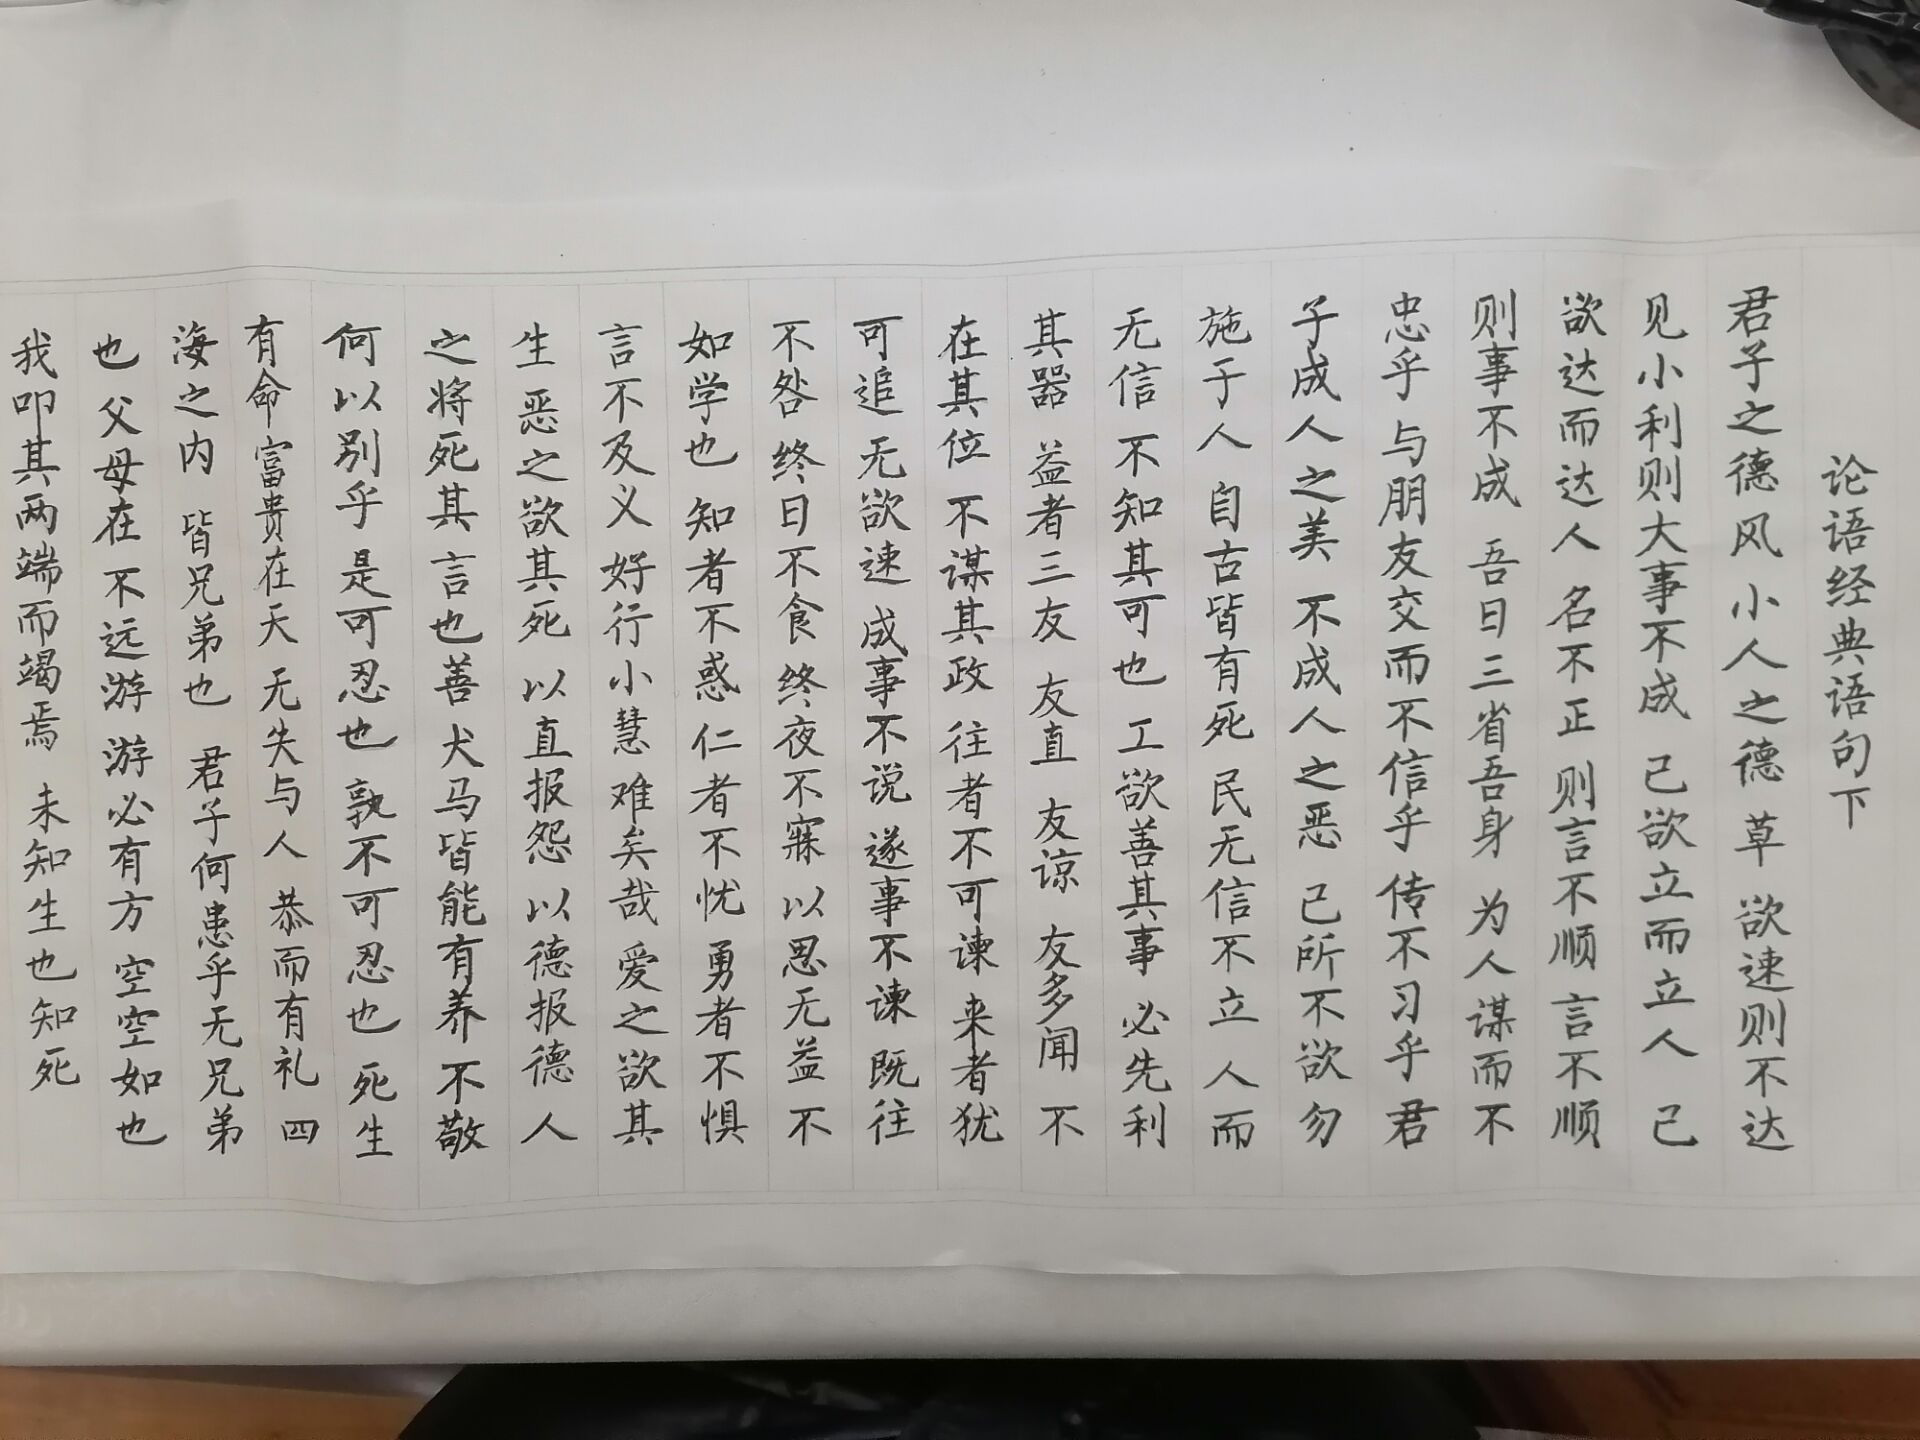 论语经典语句下
君子之德风 小人之德 草 欲速则不达
见小利则大事不成 己欲立而立人 己
欲达而达人 名不正 则言不顺 言不顺
则事不成 吾日三省吾身 为人谋而不
忠乎 与朋友交而不信乎 传不习乎 君
子成人之美 不成人之恶 己所不欲勿
施于人 自古皆有死 民无信不立 人而
无信 不知其可也 工欲善其事 必先利
其器 益者三友 友直 友谅 友多闻 不
在其位 不谋其政 往者不可谏 来者犹
可追 无欲速 成事不说 遂事不谏 既往
不咎 终日不食 终夜不寐 以思无益 不
如学也 知者不惑 仁者不忧 勇者不惧
言不及义 好行小慧 难矣哉 爱之欲其
生 恶之欲其死 以直报怨 以德报德 人
之将死 其言也善 犬马皆能有养 不敬
何以别乎 是可忍也 孰不可忍也 死生
有命 富贵在天 无失与人 恭而有礼 四
海之内 皆兄弟也 君子何患乎无兄弟
也 父母在 不远游 游必有方 空空如也
我叩其两端而竭焉 未知生也知死